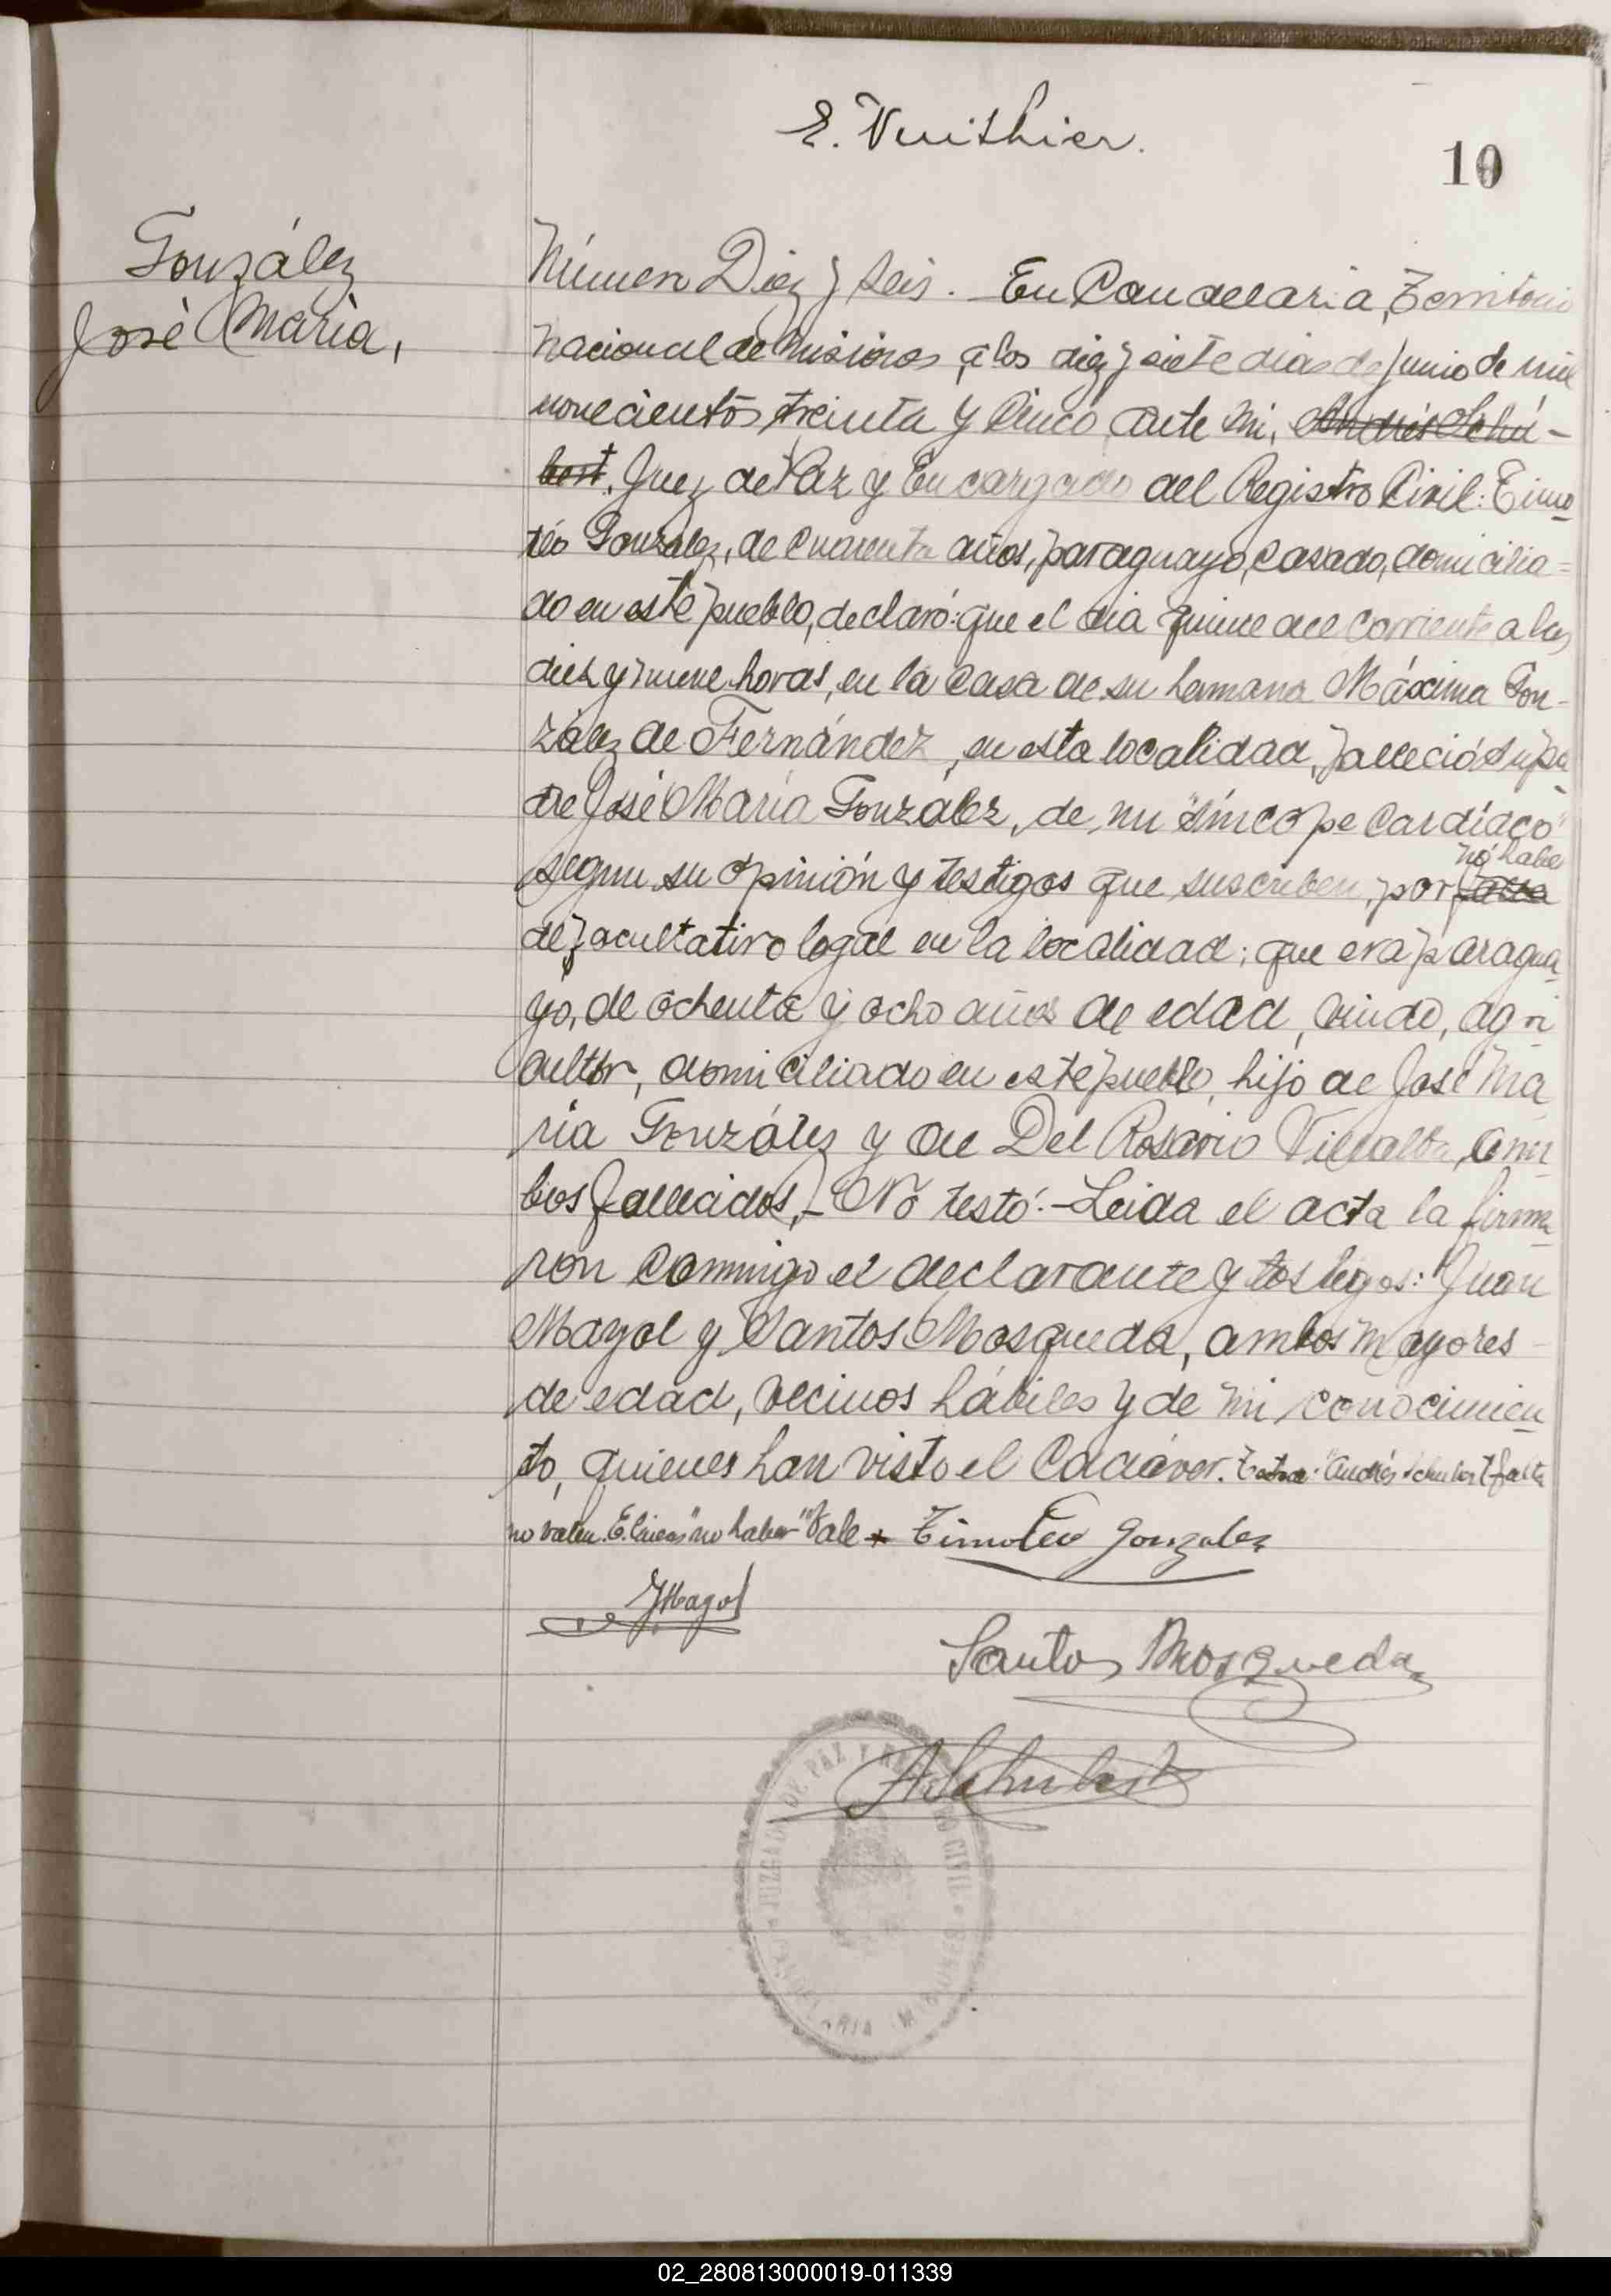 E. Vuithier.
10
González
José María,
Número Diez y seis. En Candelaria, Territorio
nacional de Misiones, a los diez y siete dias de Junio de mil
novecientos treinta y Cinco, ante mi, Andrés Schu-
bert. Juez de Paz y Encargado del Registro Civil: Timo
téo González, de cuarenta años, paraguayo, casado, domicilia=
do en este pueblo, declaró: que el dia quince del corriente a las
diez y nueve horas, en la casa de su hermana Máxima Gon-
zález de Fernández, en esta localidad, falleció su pa
dre José María González, de un "síncope Cardíaco"
no haber
segun su opinión y testigos que suscriben, por falta
de facultativo legal en la localidad; que era paragua
yo, de ochenta y ocho años de edad, viudo, agri
cultor, domiciliado en este pueblo, hijo de José Ma
ría González y de Del Rosario Villalba, am
bos fallecidos.- No testó.- Leida el acta la firma
ron conmigo el declarante y testigos: Juan
Mayol y Santos Mosqueda, ambos mayores
de edad, vecinos hábiles y de mi conocimien
to, quienes han visto el Cadáver. Testado: "Andrés Schubert falta
no valen. E. lineas "no haber" Vale
Timoteo Gonzalez
JMayol
Santos Mosqueda
ASchubert
JUZGADO DE PAZ Y REGISTRO CIVIL
CANDELARIA (MISIONES)
02_280813000019-011339